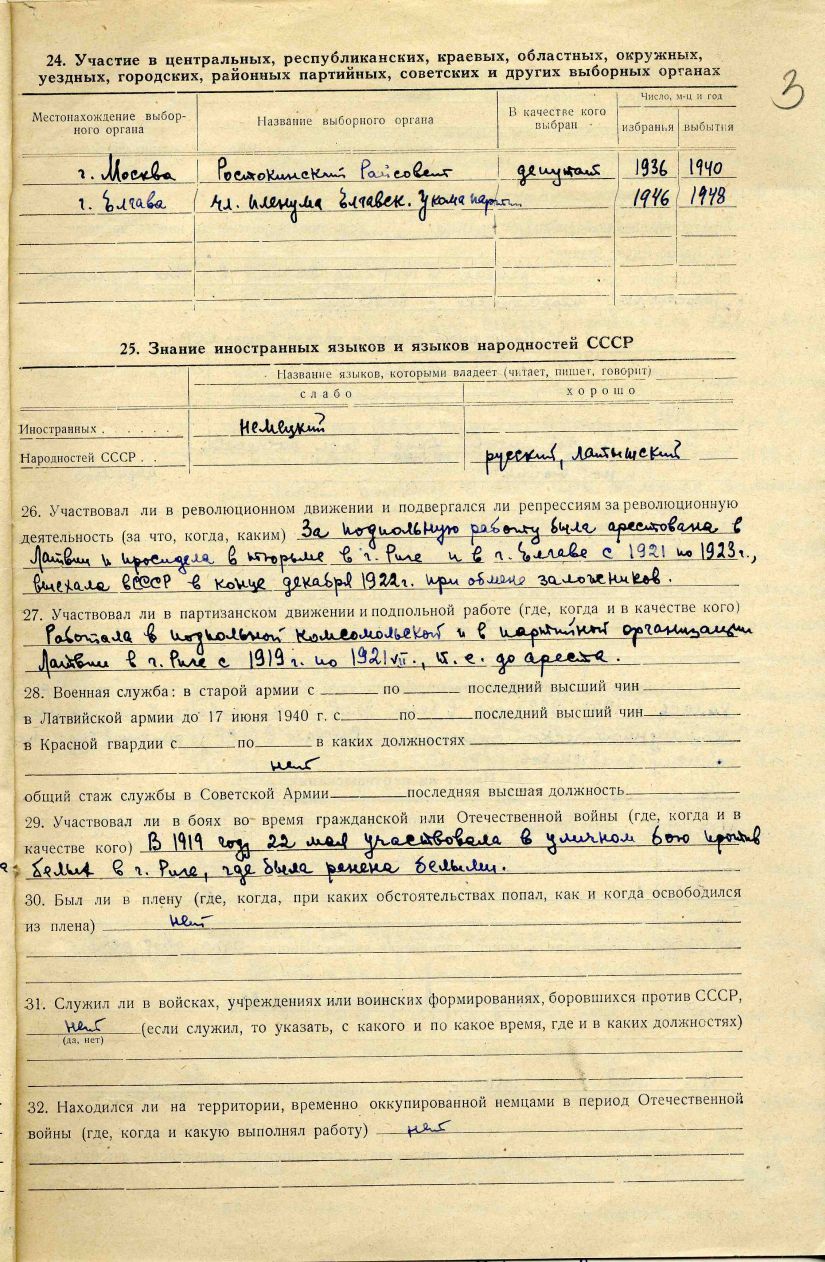 3
24. Участие в центральных, республиканских, краевых, областных, окружных,
уездных, городских, районных партийных, советских и других выборных органах
Местонахождение выбор-
ного органа
Название выборного органа
В качестве кого
выбран
Число, м-ц и год
избранья
выбытия
г. Москва Ростокинский Райсовет депутат 1936 1940
г. Елгава чл. пленума Елгавск. Укома партии 1946 1948
25. Знание иностранных языков и языков народностей СССР
Название языков, которыми владеет (читает, пишет, говорит)
слабо хорошо
Иностранных . . . . . . немецкий
Народностей СССР . . русский, латышский
26. Участвовал ли в революционном движении и подвергался ли репрессиям за революционную
деятельность (за что, когда, каким) За подпольную работу была арестована в
Латвии и просидела в тюрьме в г. Риге и в г. Елгаве с 1921 по 1923 г.,
выехала в СССР в конце декабря 1922 г. при обмене заложников.
27. Участвовал ли в партизанском движении и подпольной работе (где, когда и в качестве кого)
Работала в подпольной комсомольской и в партийной организации
Латвии в г. Риге с 1919 г. по 1921 VII., т. е. до ареста.
28. Военная служба: в старой армии с по последний высший чин
в Латвийской армии до 17 июня 1940 г. с по последний высший чин
в Красной гвардии с по в каких должностях
нет
общий стаж службы в Советской Армии последняя высшая должность
29. Участвовал ли в боях во время гражданской или Отечественной войны (где, когда и в
качестве кого) В 1919 году 22 мая участвовала в уличном бою против
белых в г. Риге, где была ранена белыми.
30. Был ли в плену (где, когда, при каких обстоятельствах попал, как и когда освободился
из плена) нет
31. Служил ли в войсках, учреждениях или воинских формированиях, боровшихся против СССР,
нет (если служил, то указать, с какого и по какое время, где и в каких должностях)
(да, нет)
32. Находился ли на территории, временно оккупированной немцами в период Отечественной
войны (где, когда и какую выполнял работу) нет